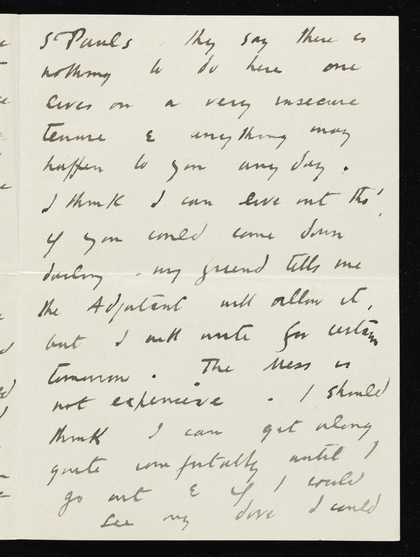 St Pauls they say there is
nothing to do here one
lives on a very insecure
tenure & anything may
happen to you any day.
I think I can live out tho',
if you could come down
darling. my friend tells me
the Adjutant will allow it,
but I will write for certain
tomorrow. The Mess is
not expensive. I should
think I can get along
quite comfortably until I
go out & if I could
see my dove I could